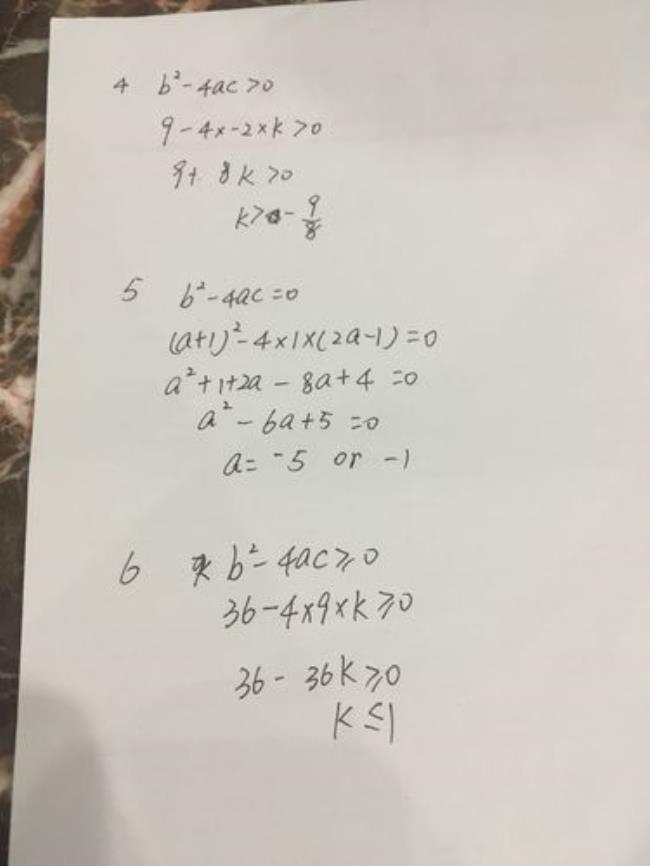 4 b²-4ac>0
9-4x-2xk>0
9+ 8k>0
k>-9/8
5 b²-4ac=0
(a+1)²-4x1x(2a-1)=0
a²+1+2a-8a+4=0
a²-6a+5=0
a=-5 or -1
6 b²-4ac≥0
36-4x9xk≥0
36-36k≥0
k≤1